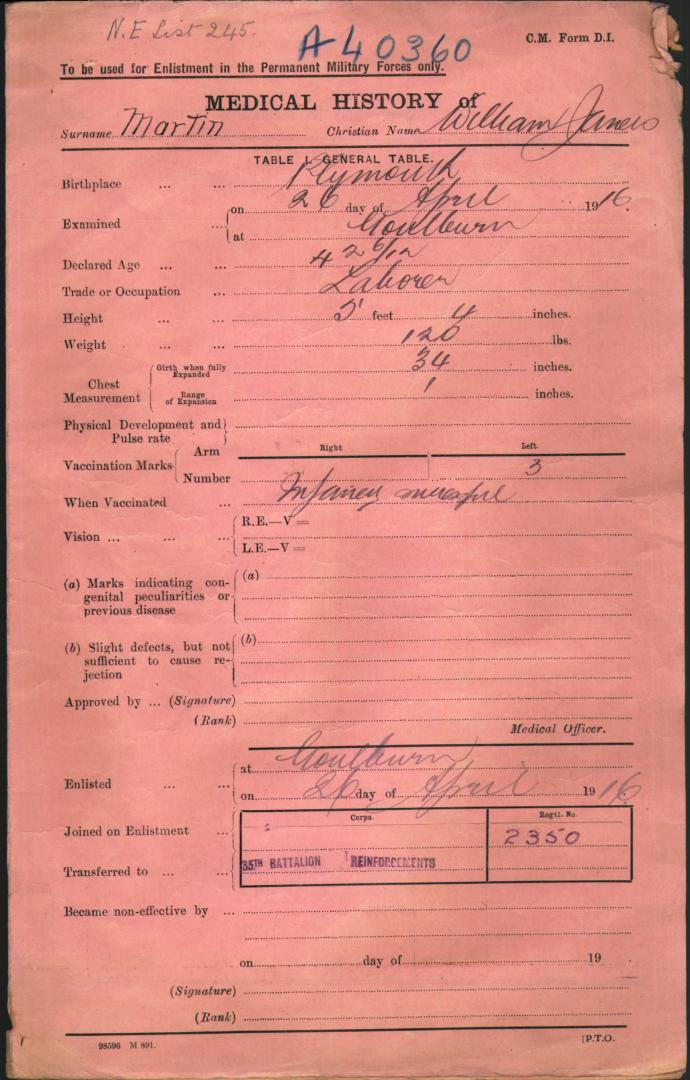 N.E List 245.
A40360
C.M. Form D.I.
To be used for Enlistment in the Permanent Military Forces only.
MEDICAL HISTORY of
Surname Martin Christian Name William James
TABLE I. GENERAL TABLE.
Birthplace ... ... Plymouth
Examined ... on 26 day of April 1916
at Goulburn
Declared Age ... ... 42 6/12
Trade or Occupation ... Laborer
Height ... ... 5' feet 4 inches.
Weight ... ... 120 lbs.
Chest Measurement Girth when fully Expanded 34 inches.
Range of Expansion 1 inches.
Physical Development and Pulse rate
Vaccination Marks Arm Right Left.
Number 3
When Vaccinated ... Infancy successful
Vision ... ... ... R.E.—V =
L.E.—V =
(a) Marks indicating con- (a)
genital peculiarities or
previous disease
(b) Slight defects, but not (b)
sufficient to cause re-
jection
Approved by ... (Signature)
(Rank)
Medical Officer.
Enlisted ... ... at Goulburn
on 26 day of April 1916
Corps. Regtl. No.
Joined on Enlistment ... 2350
Transferred to ... ... 35TH BATTALION REINFORCEMENTS
Became non-effective by ...
on day of 19
(Signature)
(Rank)
98596 M 891.
[P.T.O.